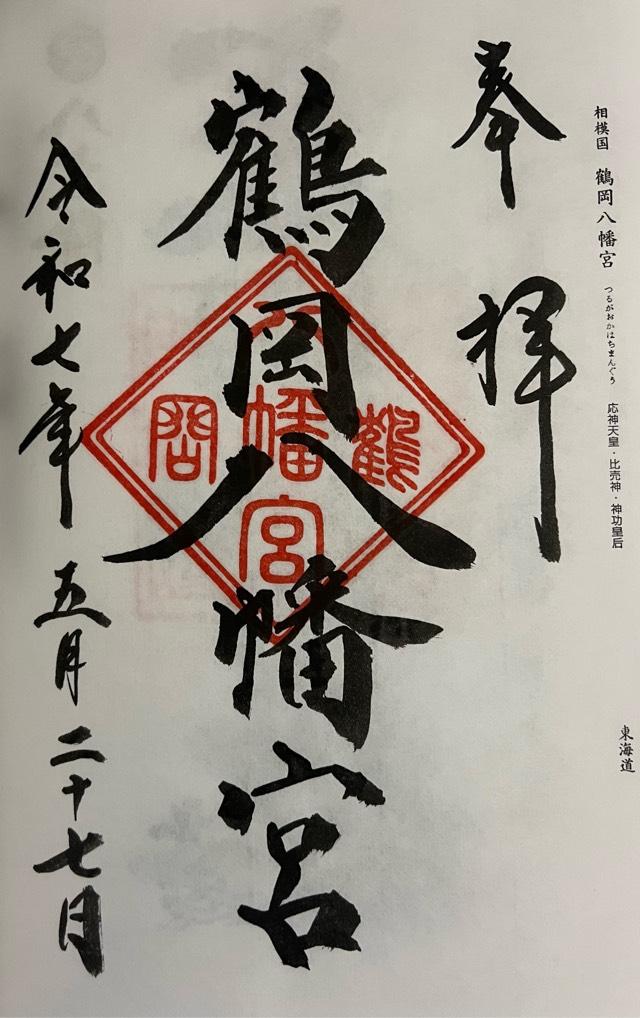 相模国 鶴岡八幡宮 つるがおかはちまんぐう 応神天皇・比売神・神功皇后
東海道
奉拝
鶴岡八幡宮
鶴岡八幡宮
令和七年 五月二十七日